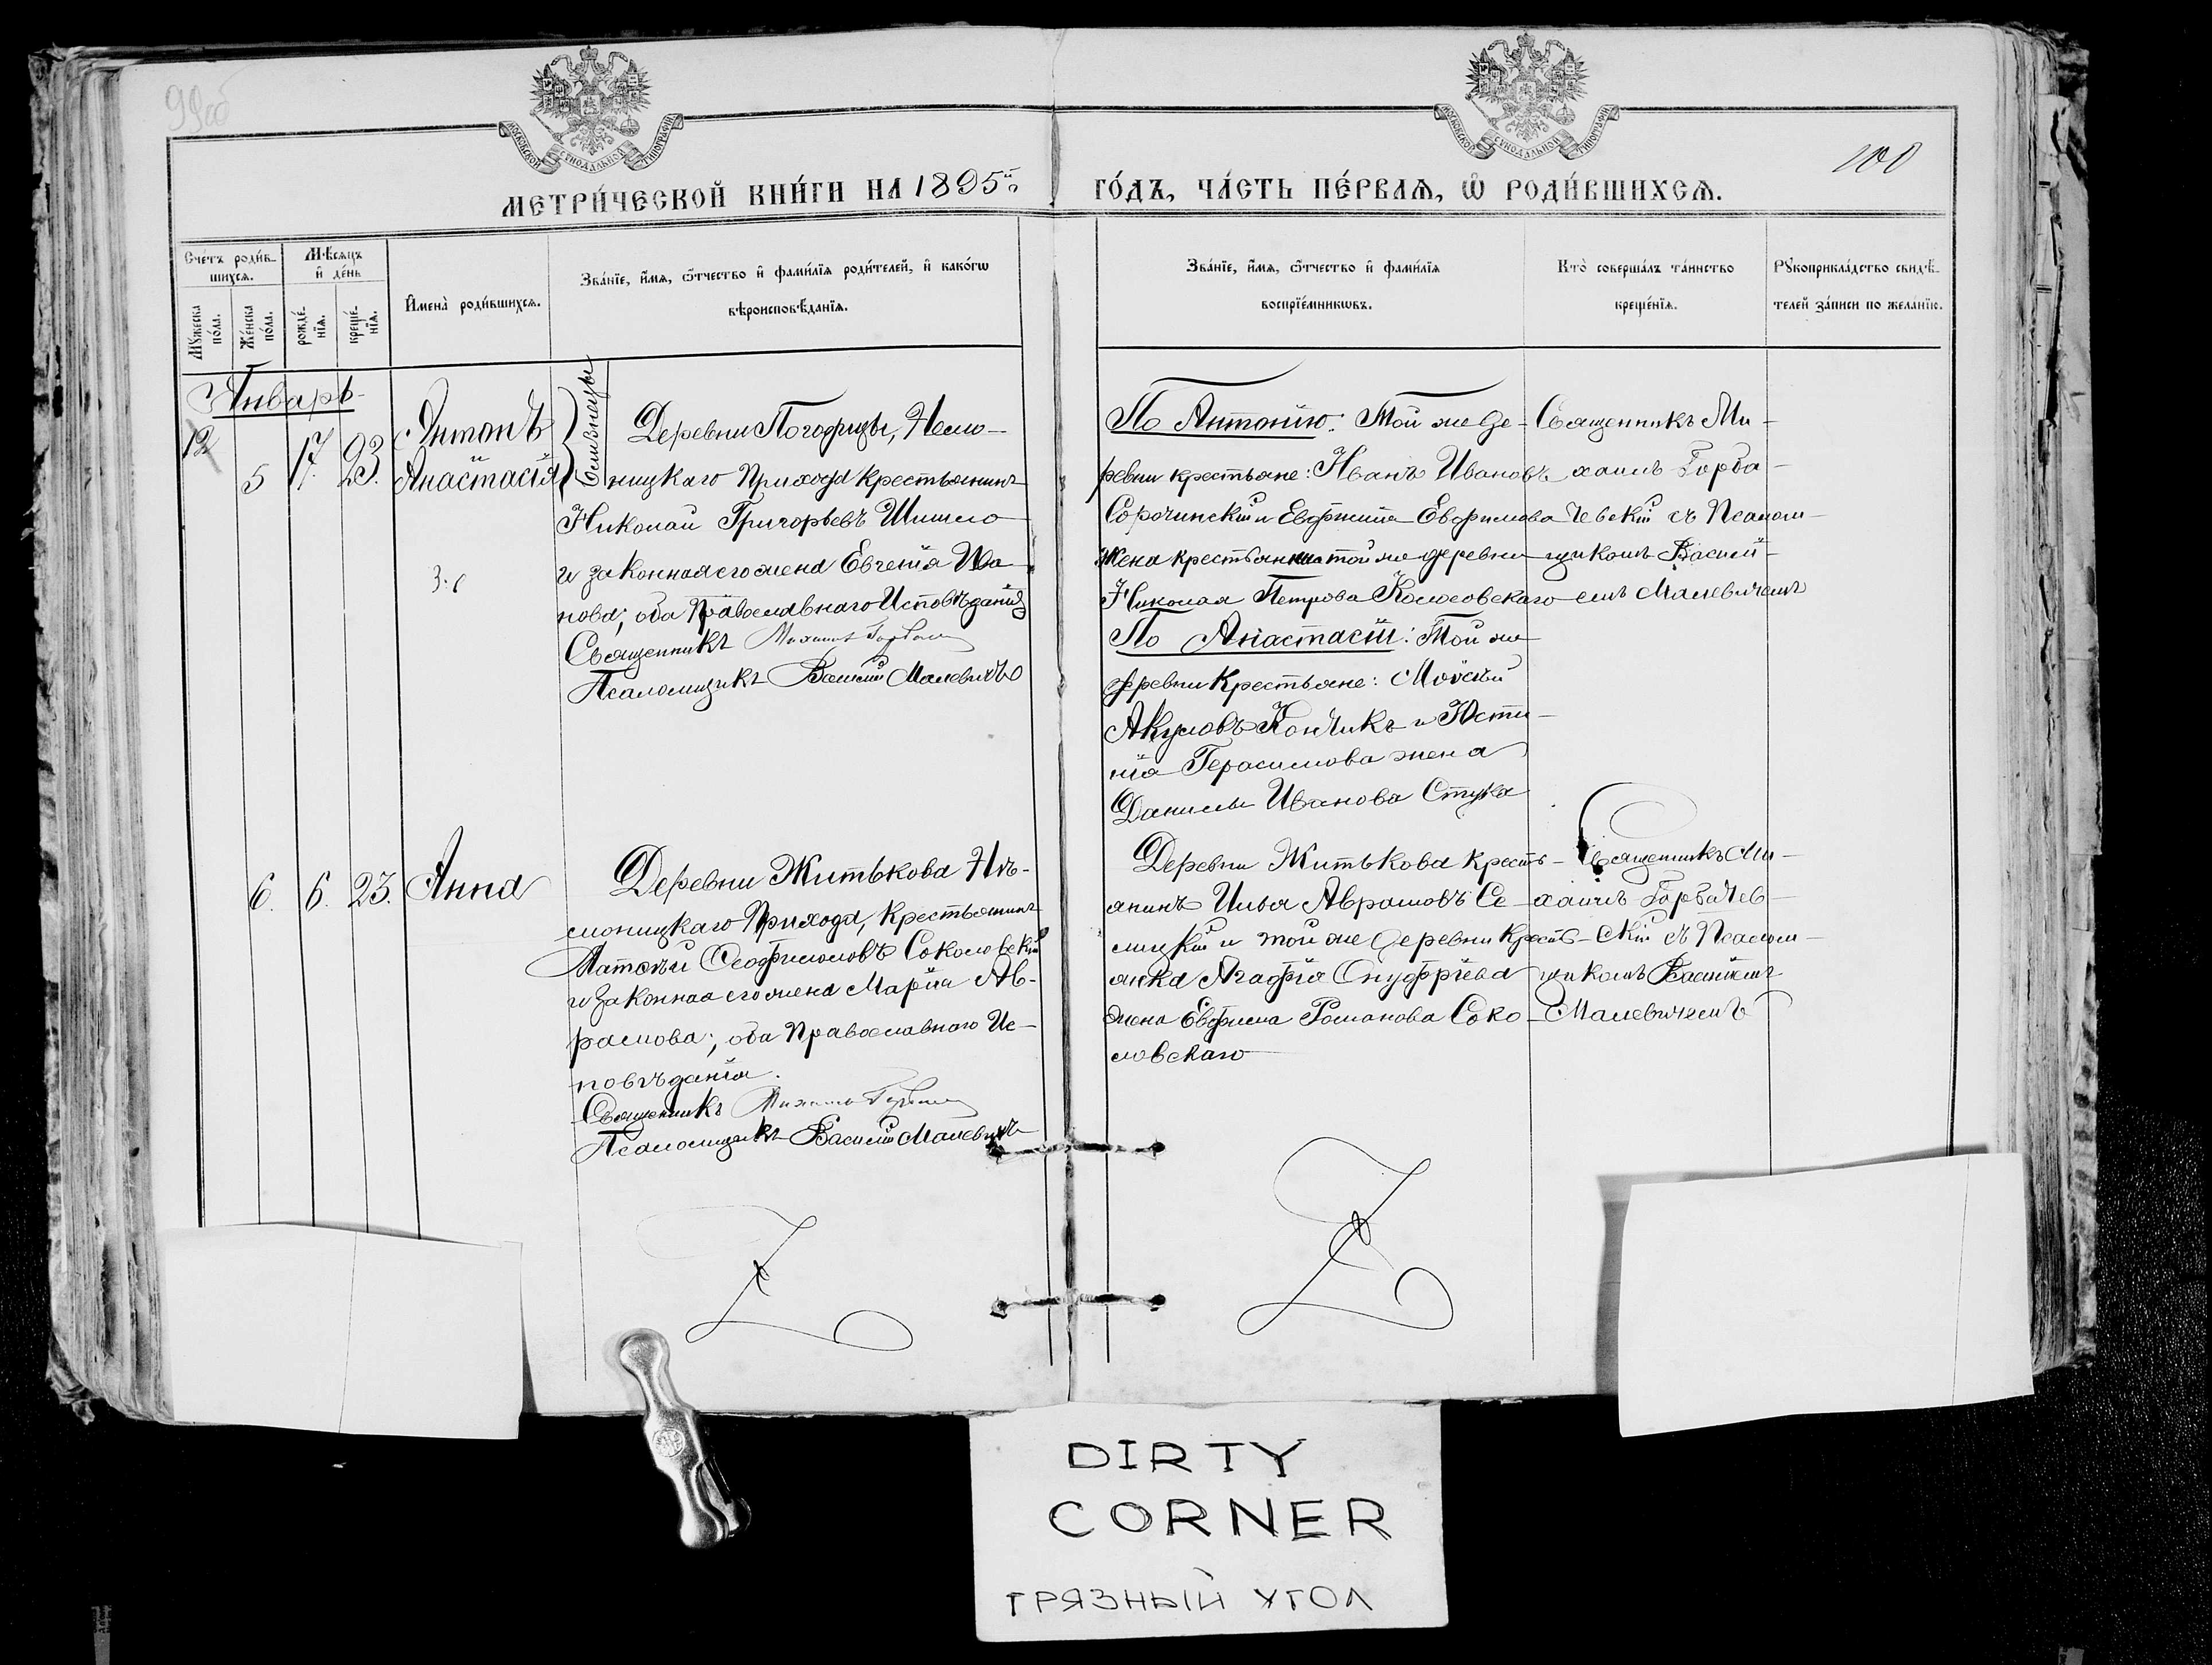 99об
100
МОСКОВСКОЙ СѴНОДАЛЬНОЙ ТИПОГРАФІИ
МОСКОВСКОЙ СѴНОДАЛЬНОЙ ТИПОГРАФІИ
МЕТРИ́ЧЕСКОЙ КНИ́ГИ НА 1895й
ГО́ДЪ, ЧА́СТЬ ПЕ́РВАѦ, Ѡ РОДИ́ВШИХСѦ.
Сче́тъ роди́в-
шихсѧ.
Мꙋжеска
по́ла.
Же́нска
по́ла.
Мѣ́сѧцъ
и де́нь
рожде́-
нїѧ.
креще́-
нїѧ.
Имена̀ роди́вшихсѧ.
Зва́нїе, и́мѧ, ѻ́тчество и фами́лїѧ роди́телей, и како́гѡ
вѣроисповѣ́данїѧ.
Зва́нїе, и́мѧ, ѻ́тчество и фами́лїѧ
воспрїе́мникѡвъ.
Кто̀ соверша́лъ та́инство
креще́нїѧ.
Рꙋкоприкла́дство свидѣ́-
телей за́писи по жела́нїю.
Январь
12
5
17.
23.
Антонъ
Анастасія
Близнецы
Деревни Погодицы, Немо-
ницкаго Прихода крестьянинъ
Николай Григорьевъ Шишло
и законная его жена Евгенія Ива
нова; оба Православнаго Исповѣданія
Священникъ Михаилъ
Псаломщикъ Василій Малевичъ
По Антонію: Той же де-
ревни крестьяне: Иванъ Ивановъ
Сорочинскій и Евфимія Евфимова
жена крестьянина той же деревни
Николая Петрова Колосовскаго
По Анастасіи: Той же
деревни крестьяне: Моисей
Акуловъ Кончикъ и Юсти-
нія Герасимова жена
Данилы Иванова Стука
Священникъ Ми-
хаилъ Горба-
чевскій съ Псалом-
щикомъ Василі-
емъ Малевичемъ
6.
6.
23.
Анна
Деревни Житькова Не-
моницкаго Прихода, крестьянинъ
Матѳей Ѳеофиломовъ Соколовскій
и законная его жена Марія Ав-
рамова; оба Православнаго Ис-
повѣданія.
Священникъ Михаилъ
Псаломщикъ Василій Малевичъ
Деревни Житькова кресть-
янинъ Илья Аврамовъ Се-
мицкій и той же деревни кресть-
янка Агафія Онуфріева
жена Евфима Романова Соко-
ловскаго
Священникъ Ми-
хаилъ Горбачев-
скій съ Псалом-
щикомъ Василіемъ
Малевичемъ
DIRTY
CORNER
ГРЯЗНЫЙ УГОЛ